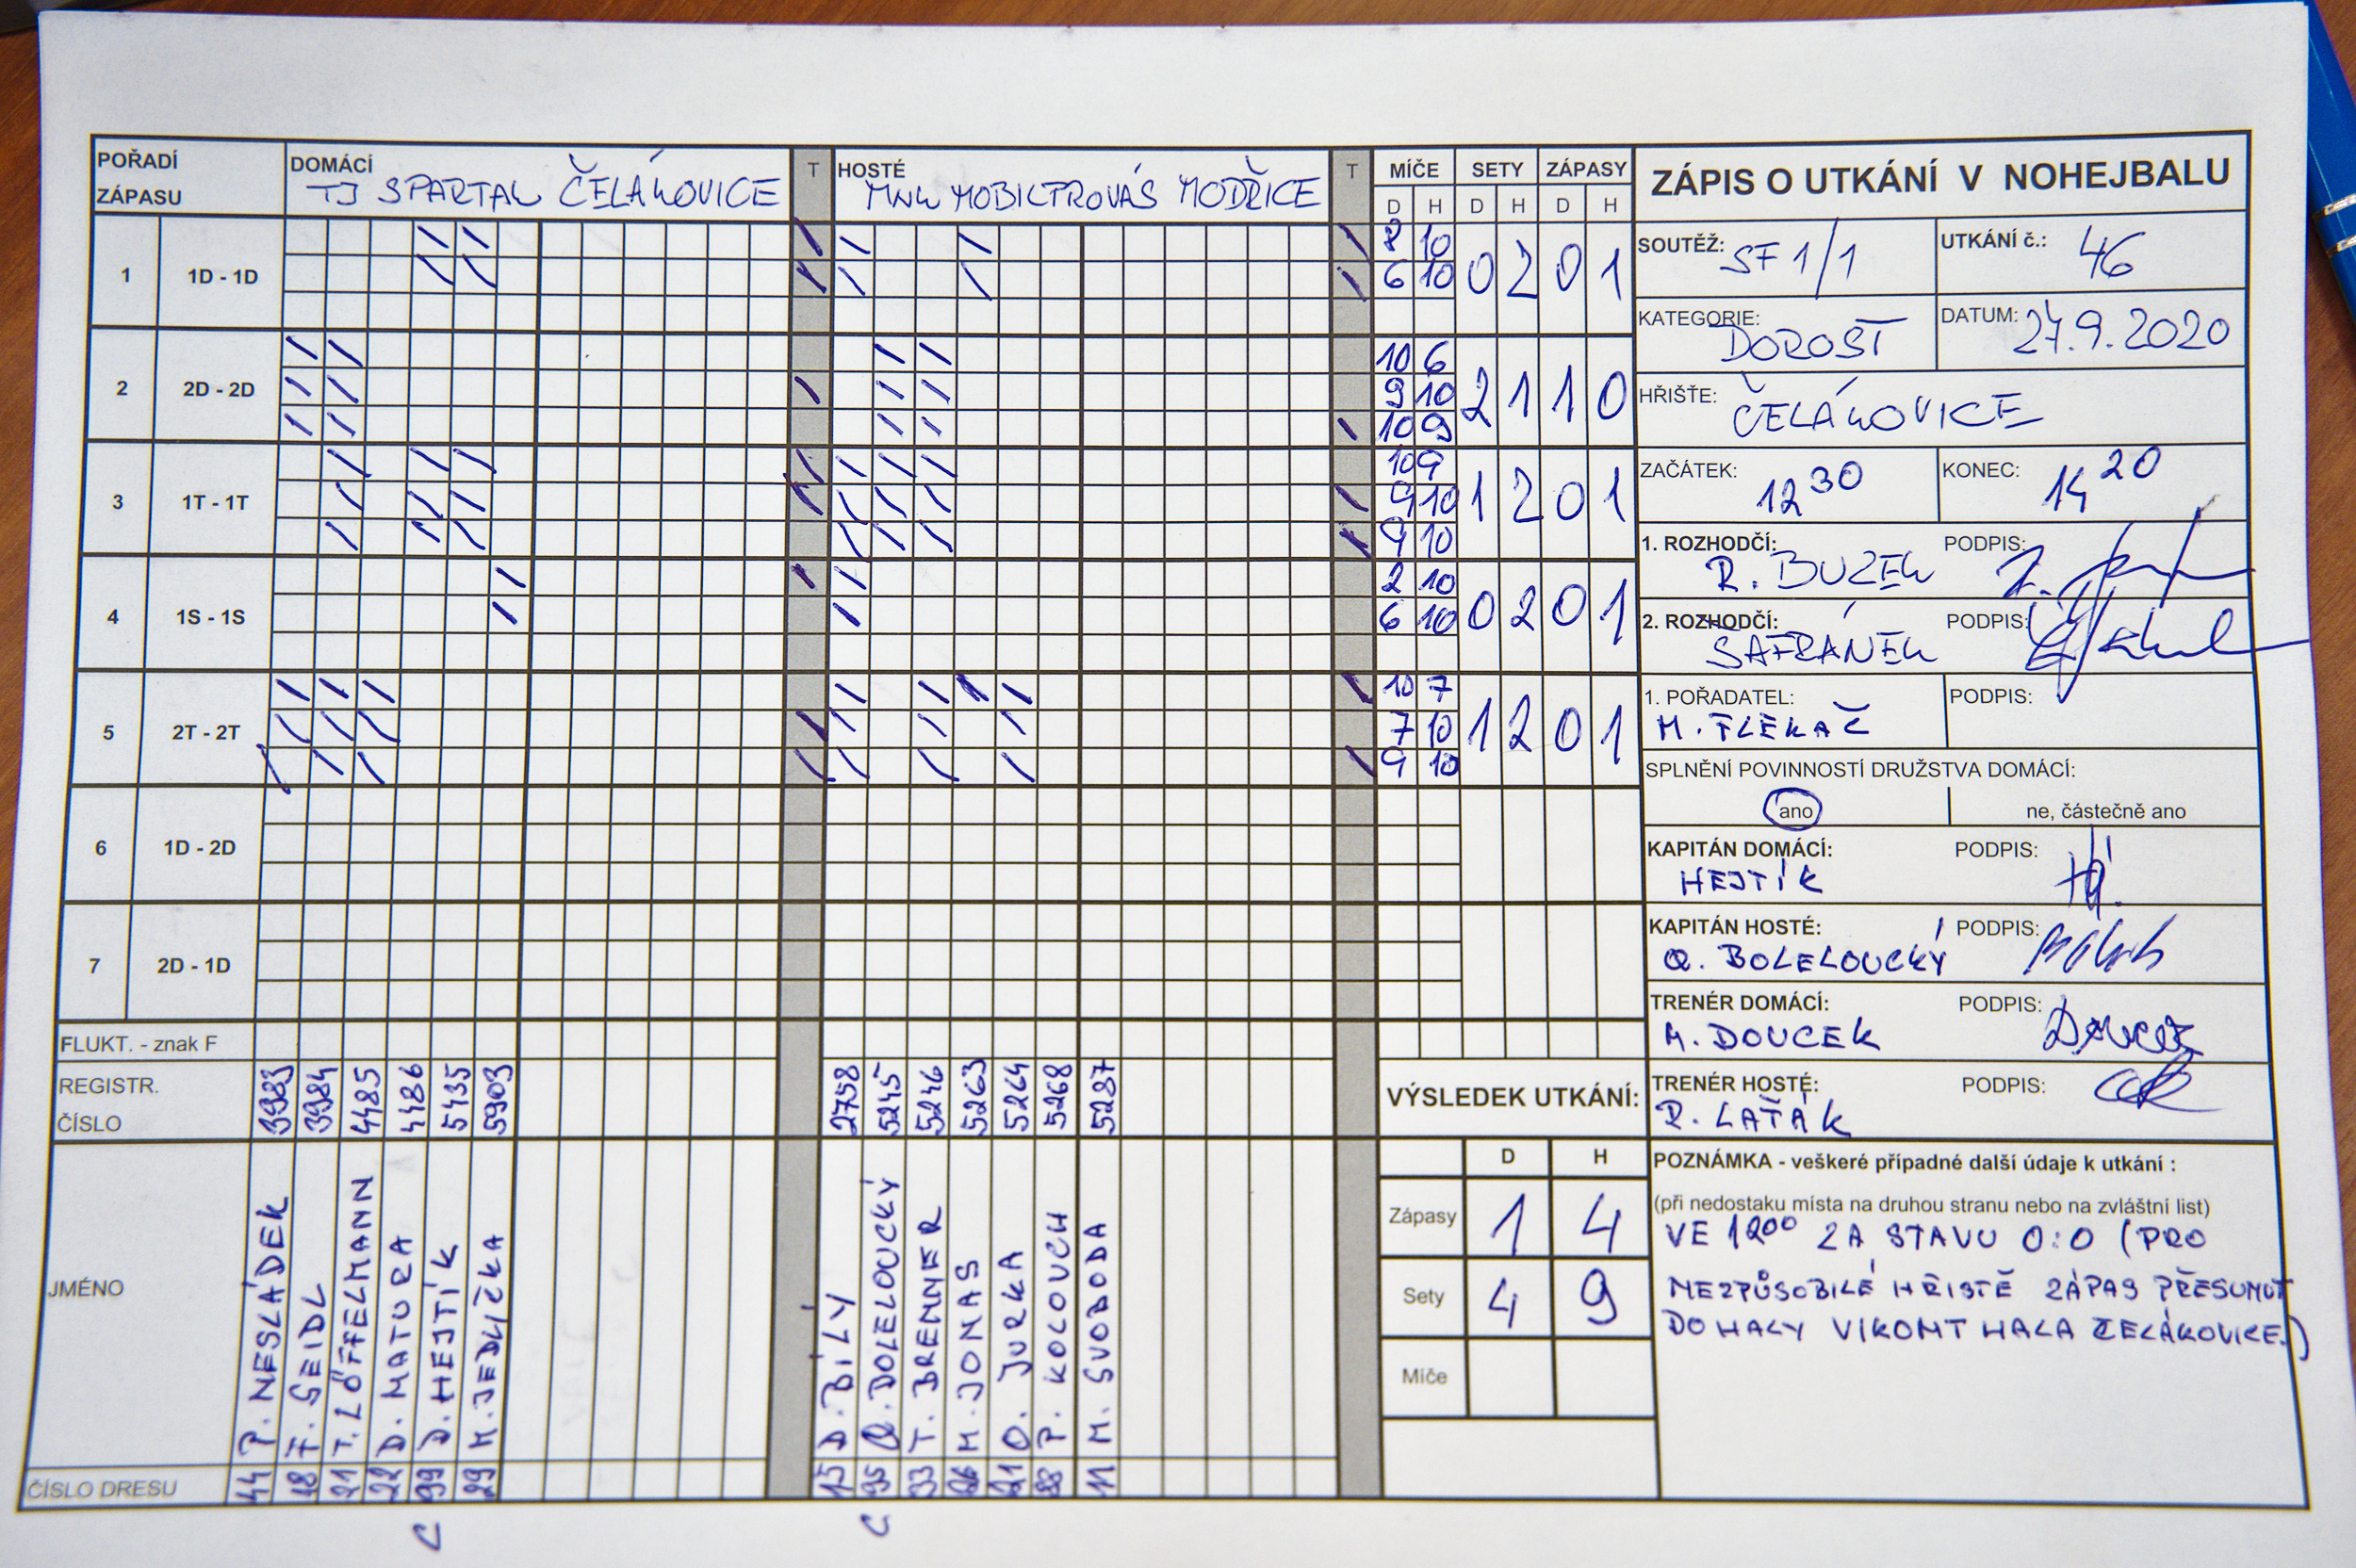 POŘADÍ ZÁPASU
DOMÁCÍ
TJ SPARTAK ČELÁKOVICE
T
HOSTÉ
MNK MODŘICE
T
MÍČE SETY ZÁPASY
D H D H D H
1 1D - 1D
8 10
6 10
0 2 0 1
2 2D - 2D
10 6
9 10
10 9
2 1 1 0
3 1T - 1T
10 9
9 10
9 10
1 2 0 1
4 1S - 1S
2 10
6 10
0 2 0 1
5 2T - 2T
10 7
7 10
9 10
1 2 0 1
6 1D - 2D
7 2D - 1D
FLUKT. - znak F
REGISTR. ČÍSLO
3983 3984 4485 4486 5435 5903
2758 5245 5246 5263 5264 5268 5287
JMÉNO
P. NESLÁDEK
F. SEIDL
T. LÖFFELMANN
D. MATURA
D. HEJTÍK
M. JEDLIČKA
D. BÍLÝ
O. DOLELOUCKÝ
T. BREMNER
M. JONAS
O. JURKA
P. KOLOUCH
M. SVOBODA
ČÍSLO DRESU
44 18 21 22 99 29
15 95 33 26 21 88 11
C
C
ZÁPIS O UTKÁNÍ V NOHEJBALU
SOUTĚŽ: SF 1/1
UTKÁNÍ č.: 46
KATEGORIE: DOROST
DATUM: 27.9.2020
HŘIŠTĚ: ČELÁKOVICE
ZAČÁTEK: 12 30
KONEC: 14 20
1. ROZHODČÍ: R. BUZEK
PODPIS:
2. ROZHODČÍ: ŠAFRÁNEK
PODPIS:
1. POŘADATEL: M. FLEKAČ
PODPIS:
SPLNĚNÍ POVINNOSTÍ DRUŽSTVA DOMÁCÍ:
ano
ne, částečně ano
KAPITÁN DOMÁCÍ: HEJTÍK
PODPIS:
KAPITÁN HOSTÉ: O. BOLELOUCKÝ
PODPIS:
TRENÉR DOMÁCÍ: M. DOUCEK
PODPIS: Doucek
TRENÉR HOSTÉ: R. LAŤÁK
PODPIS:
VÝSLEDEK UTKÁNÍ:
D H
Zápasy 1 4
Sety 4 9
Míče
POZNÁMKA - veškeré případné další údaje k utkání :
(při nedostaku místa na druhou stranu nebo na zvláštní list)
VE 12 00 ZA STAVU 0:0 (PRO
NEZPŮSOBILÉ HŘIŠTĚ ZÁPAS PŘESUNUT
DO HALY VIKOMT HALA ČELÁKOVICE.)